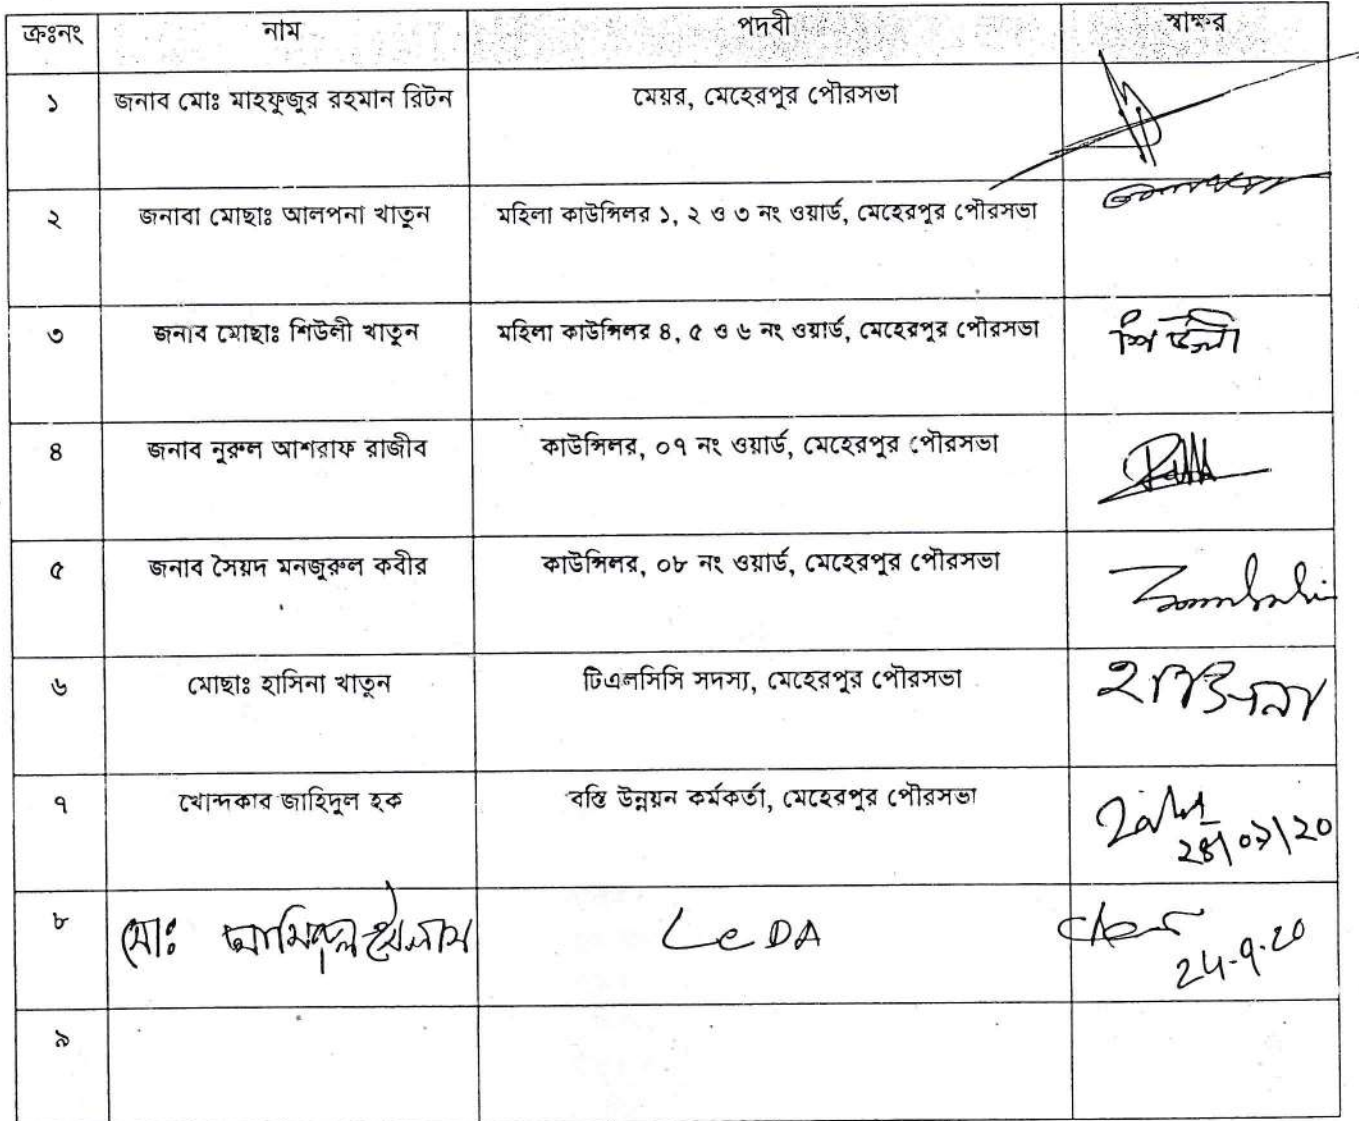 ক্রঃনং নাম পদবী স্বাক্ষর
১ জনাব মোঃ মাহফুজুর রহমান রিটন মেয়র, মেহেরপুর পৌরসভা
২ জনাবা মোছাঃ আলপনা খাতুন মহিলা কাউন্সিলর ১, ২ ও ৩ নং ওয়ার্ড, মেহেরপুর পৌরসভা
৩ জনাব মোছাঃ শিউলী খাতুন মহিলা কাউন্সিলর ৪, ৫ ও ৬ নং ওয়ার্ড, মেহেরপুর পৌরসভা শিউলী
৪ জনাব নুরুল আশরাফ রাজীব কাউন্সিলর, ০৭ নং ওয়ার্ড, মেহেরপুর পৌরসভা
৫ জনাব সৈয়দ মনজুরুল কবীর কাউন্সিলর, ০৮ নং ওয়ার্ড, মেহেরপুর পৌরসভা
৬ মোছাঃ হাসিনা খাতুন টিএলসিসি সদস্য, মেহেরপুর পৌরসভা হাসিনা
৭ খোন্দকার জাহিদুল হক বস্তি উন্নয়ন কর্মকর্তা, মেহেরপুর পৌরসভা
৮ মোঃ আমিনুল ইসলাম LeDA
24-9-20
৯